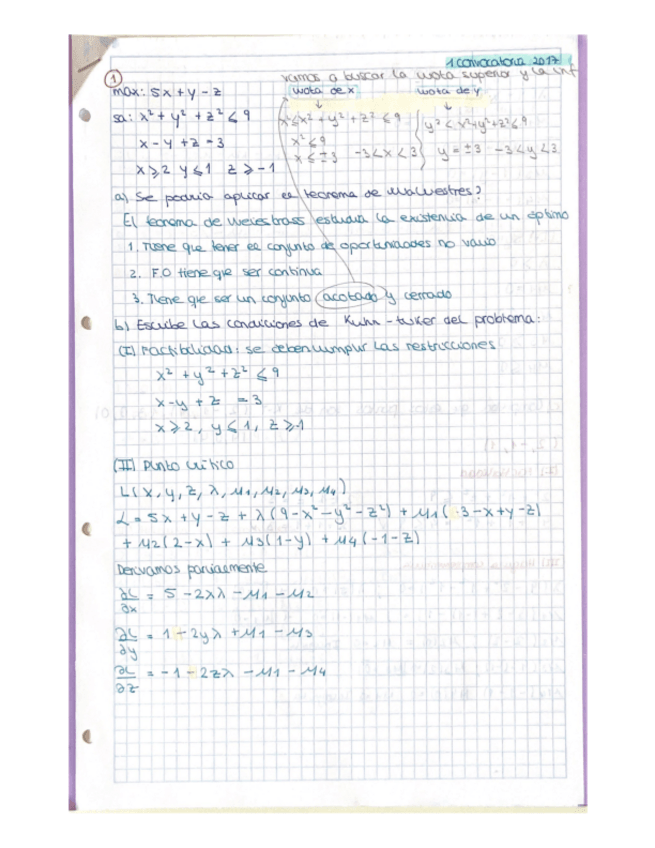 1 convocatoria 2017
vamos a buscar la cota superior y la inf
①
max: 5x + y - z
cota de x
↓
cota de y
↓
sa: x² + y² + z² ≤ 9
x² ≤ x² + y² + z² ≤ 9
y² < x² + y² + z² ≤ 9
x² ≤ 9
x - y + z = 3
x ≤ ±3 -3 < x < 3
y = ±3 -3 < y < 3
x ≥ 2 y ≤ 1 z ≥ -1
a) Se podría aplicar el teorema de
El teorema de Weiestrass estudia la existencia de un óptimo
1. Tiene que tener el conjunto de oportunidades no vacio
2. F.O tiene que ser continua
3. Tiene que ser un conjunto acotado y cerrado
b) Escribe las condiciones de Kuhn-tuker del problema:
(I) Factibilidad: se deben cumplir las restricciones
x² + y² + z² ≤ 9
x - y + z = 3
x ≥ 2, y ≤ 1, z ≥ -1
(II) Punto crítico
L(x, y, z, λ, μ1, μ2, μ3, μ4)
L = 5x + y - z + λ(9 - x² - y² - z²) + μ1(3 - x + y - z)
+ μ2(2 - x) + μ3(1 - y) + μ4(-1 - z)
Derivamos parcialmente
∂L/∂x = 5 - 2xλ - μ1 - μ2
∂L/∂y = 1 - 2yλ + μ1 - μ3
∂L/∂z = -1 - 2zλ - μ1 - μ4